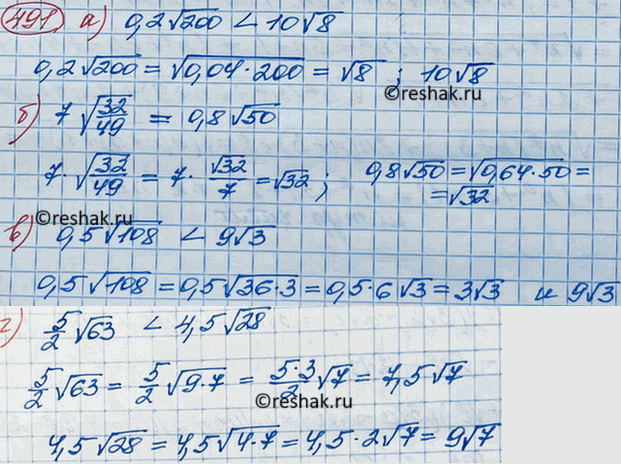 491 а) 0,2√200 < 10√8
0,2√200 = √0,04·200 = √8 ; 10√8
©reshak.ru
б) 7√32/49 = 0,8√50
7·√32/49 = 7·√32/7 = √32 ; 0,8√50 = √0,64·50 =
= √32
©reshak.ru
в) 0,5√108 < 9√3
0,5√108 = 0,5√36·3 = 0,5·6√3 = 3√3 и 9√3
г) 5/2√63 < 4,5√28
5/2√63 = 5/2√9·7 = 5·3/2√7 = 7,5√7
©reshak.ru
4,5√28 = 4,5√4·7 = 4,5·2√7 = 9√7